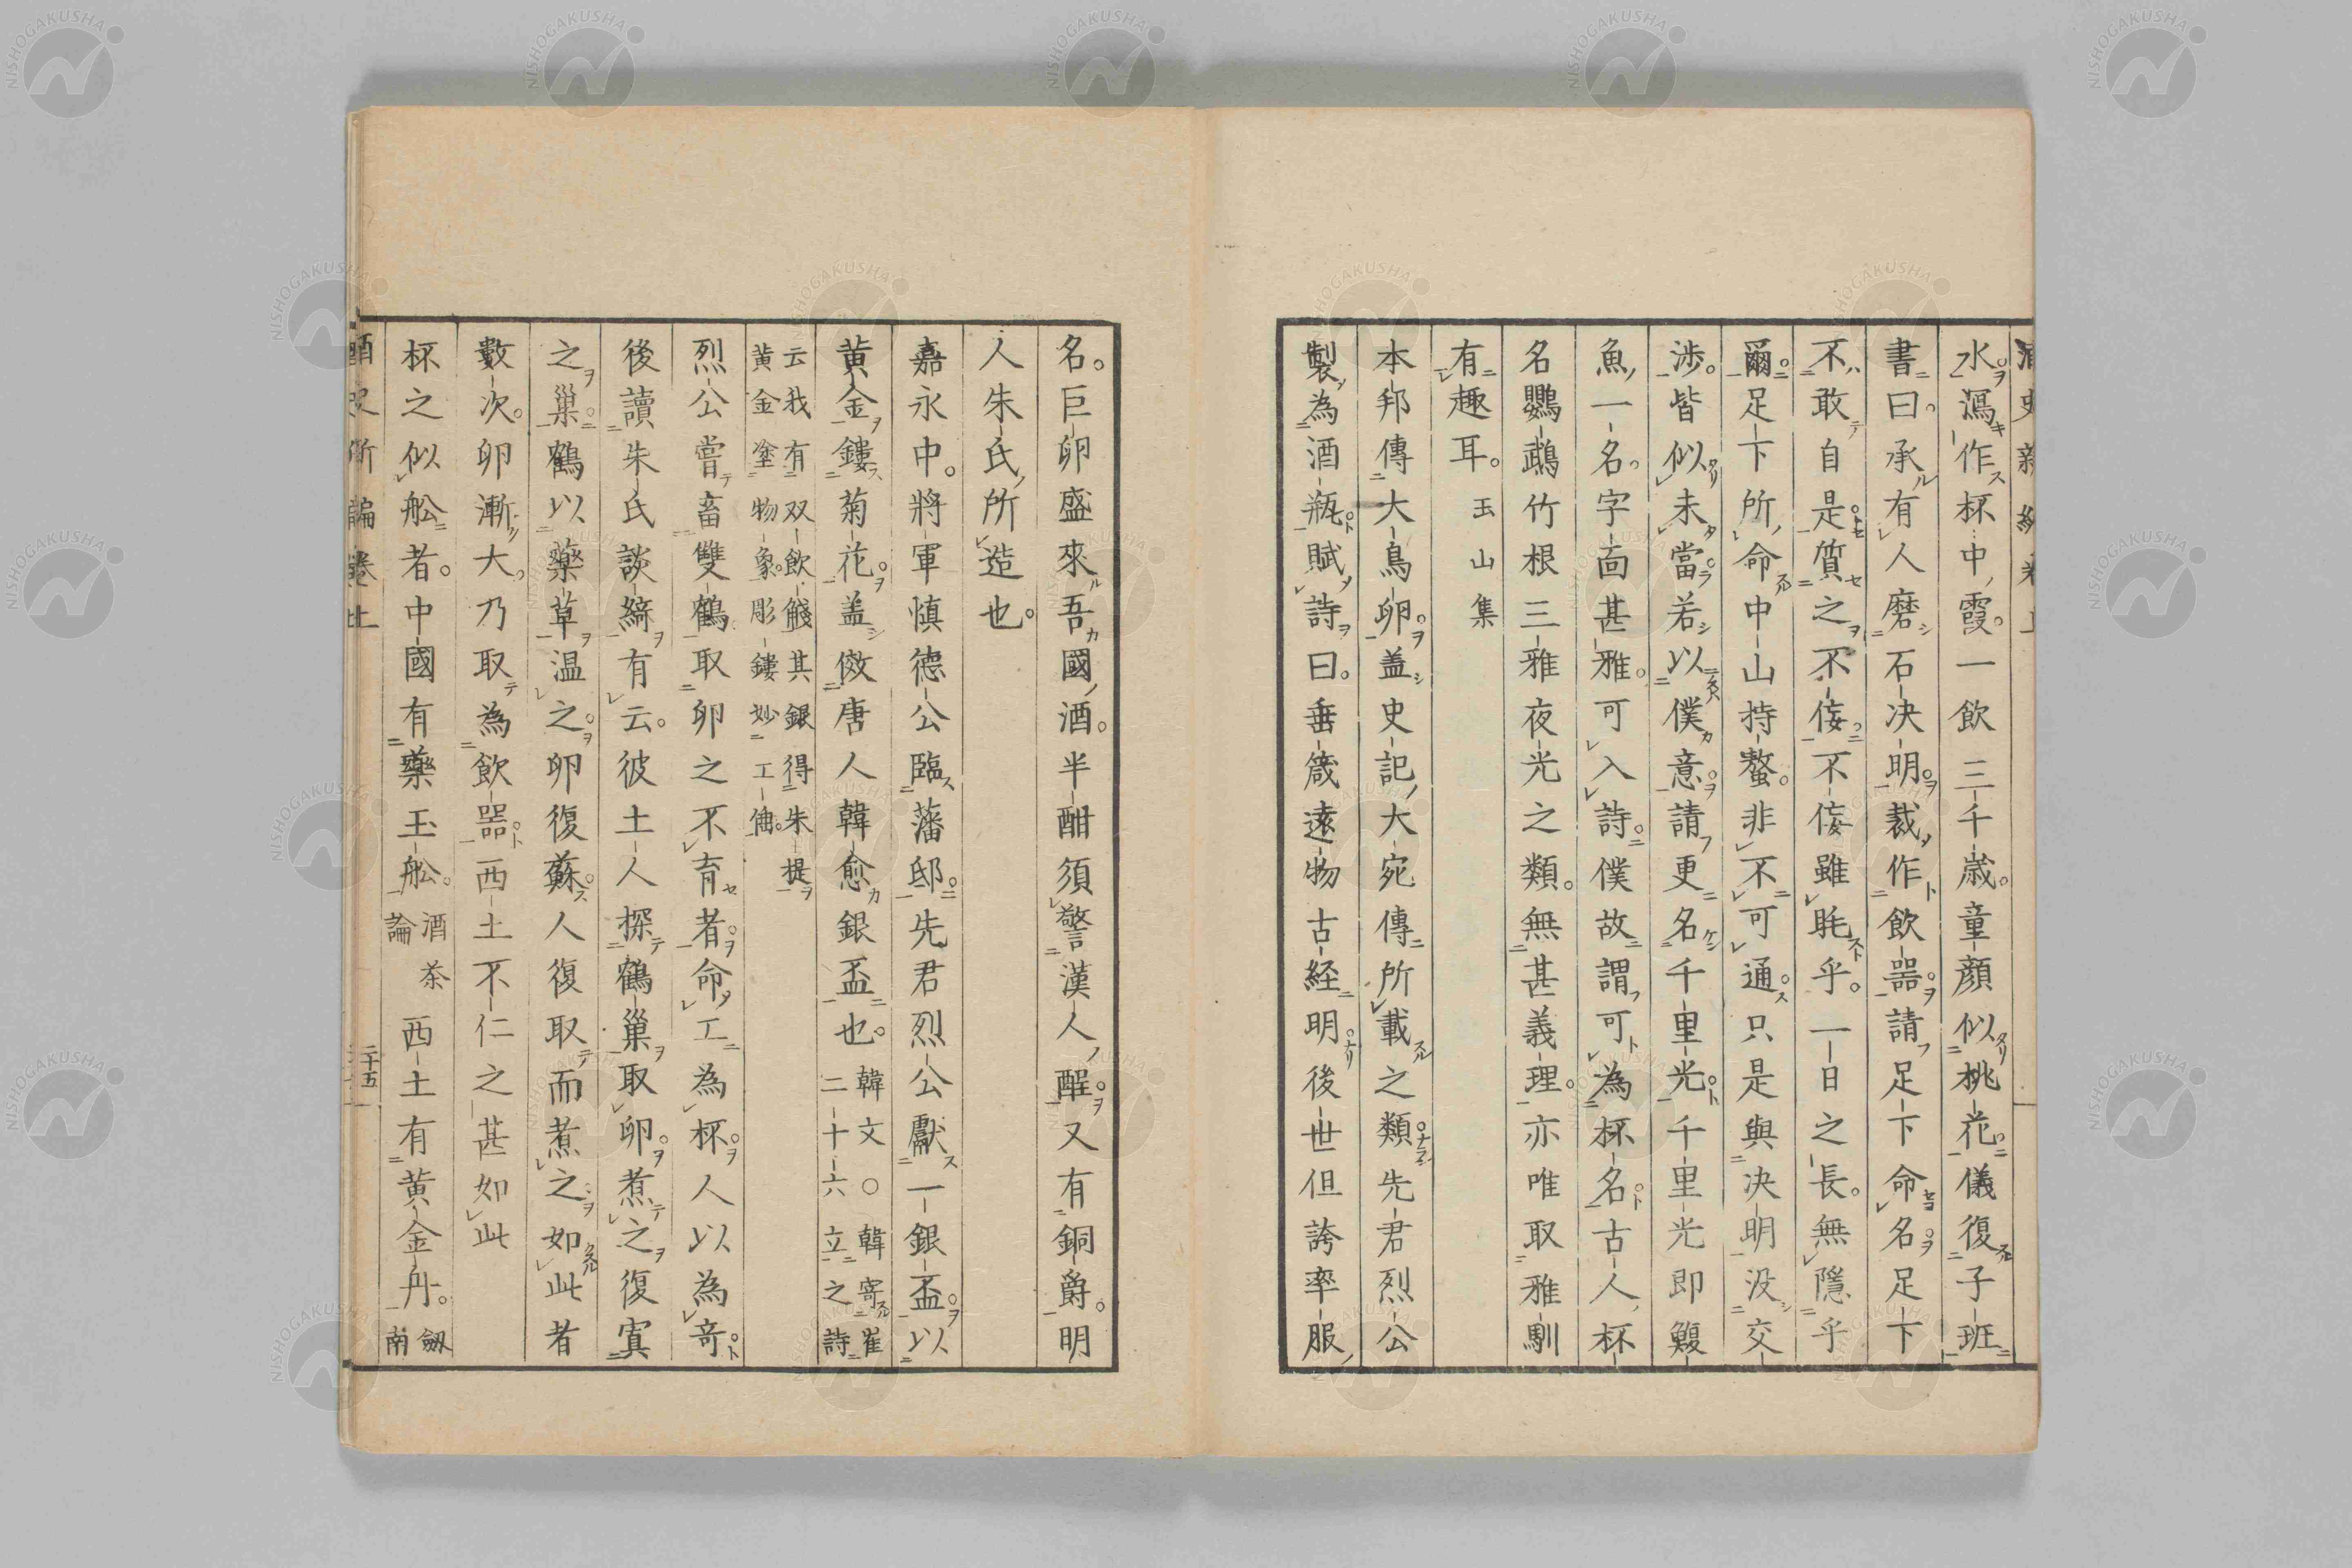 水瀉作杯中霞。一飲三千歳。童顔似桃花。儀復子班
書曰。承有人磨石决明。裁作飲噐。請足下命名。足下
不敢自是。質之不侫。不侫雖耄乎。一日之長。無隱乎
爾。足下所命中山持螯。非不可通。只是與决明没交
渉。皆似未當。若以僕意。請更名千里光。千里光即鰒
魚一名。字面甚雅。可入詩。僕故謂可為杯名。古人杯
名鸚鵡竹根三雅夜光之類。無甚義理。亦唯取雅馴
有趣耳。玉山集
本邦傳大鳥卵。盖史記大宛傳所載之類。先君烈公
製為酒瓶。賦詩曰。垂箴遠物古経明。後世但誇率服
名。巨卵盛來吾國酒。半酣須警漢人醒。又有銅爵。明
人朱氏所造也。
嘉永中。將軍慎德公臨藩邸。先君烈公獻一銀盃。以
黄金鏤菊花。盖傚唐人韓愈銀盃也。韓文〇韓寄崔二十六立之詩
云我有双飲醆其銀得朱提黄金塗物象。彫鏤妙工倕。
烈公嘗畜雙鶴。取卵之不育者。命工為杯。人以為竒。
後讀朱氏談綺有云。彼土人探鶴巢取卵。煮之復寘
之巢。鶴以藥草温之。卵復蘇。人復取而煮之。如此者
數次。卵漸大。乃取為飲噐。西土不仁之甚如此
杯之似舩者。中國有藥玉舩。酒茶論 西土有黄金舟。劔南